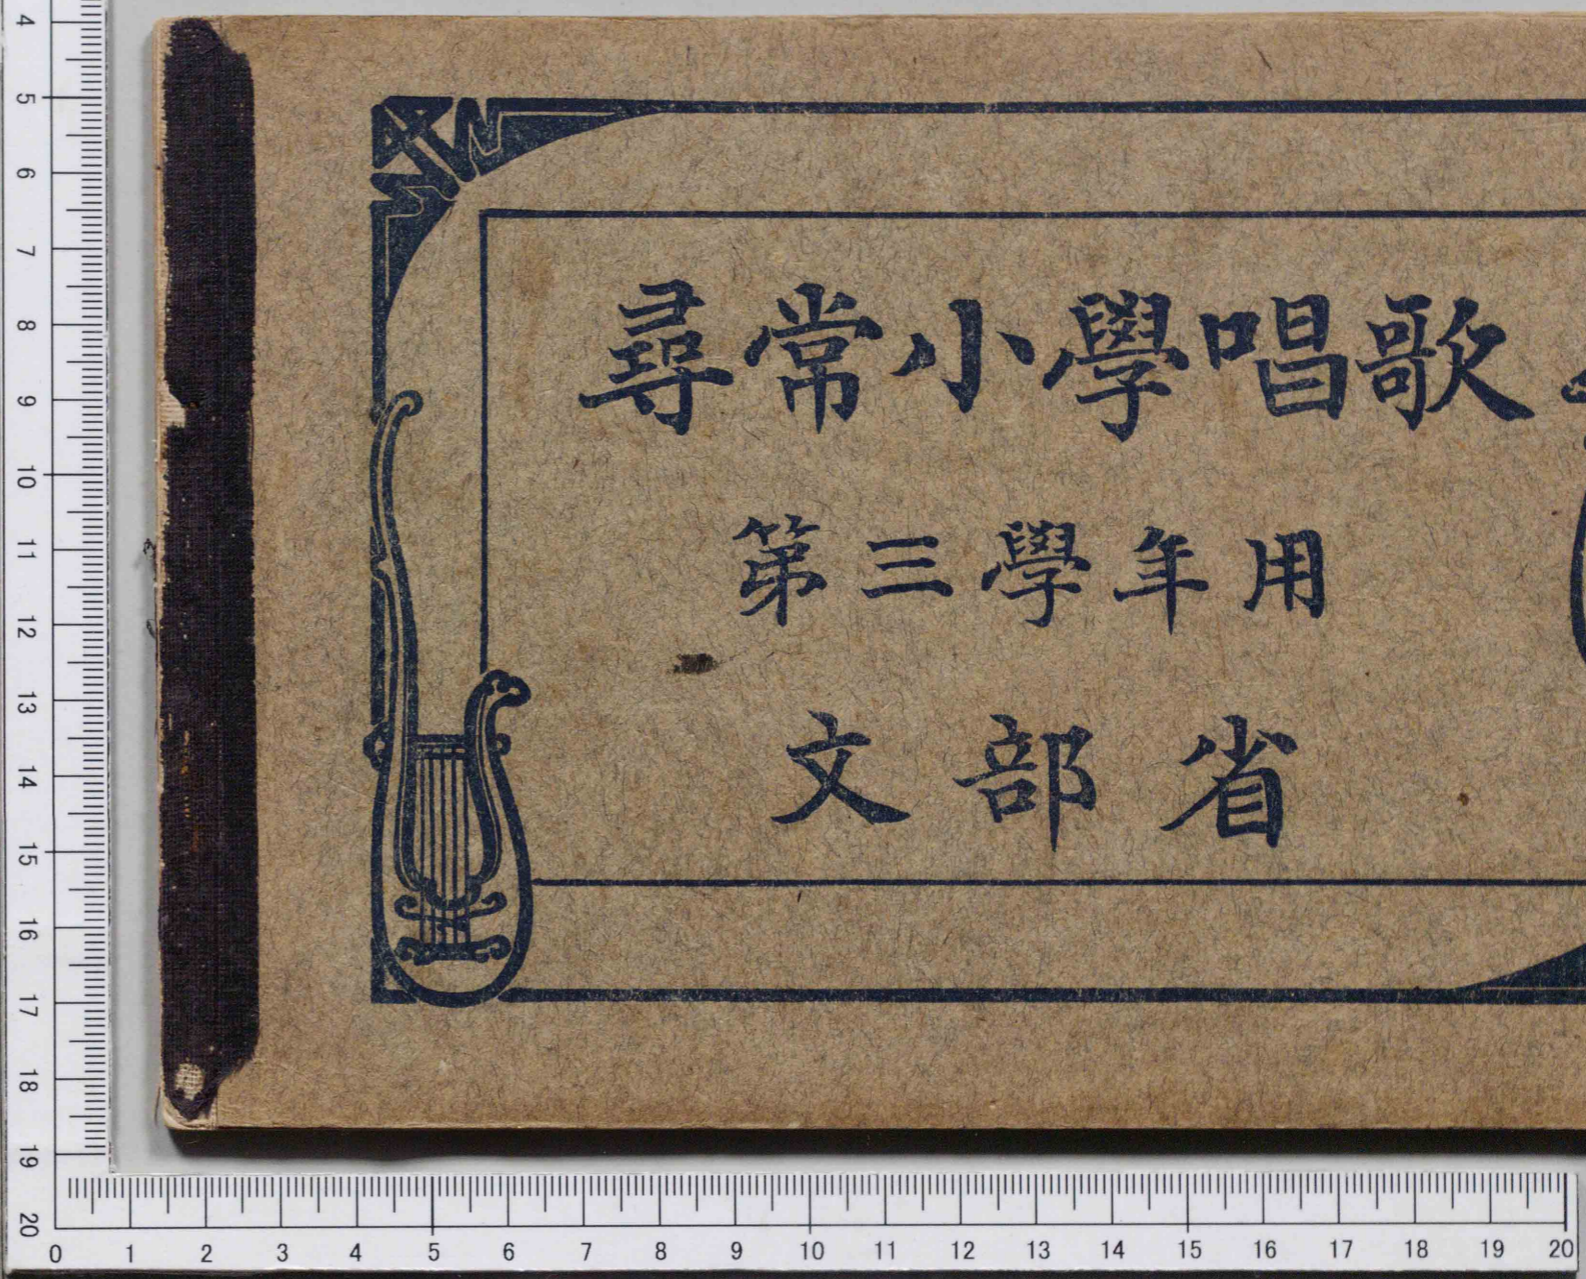 尋常小學唱歌
第三學年用
文部省
4
5
6
7
8
9
10
11
12
13
14
15
16
17
18
19
20
0 1 2 3 4 5 6 7 8 9 10 11 12 13 14 15 16 17 18 19 20